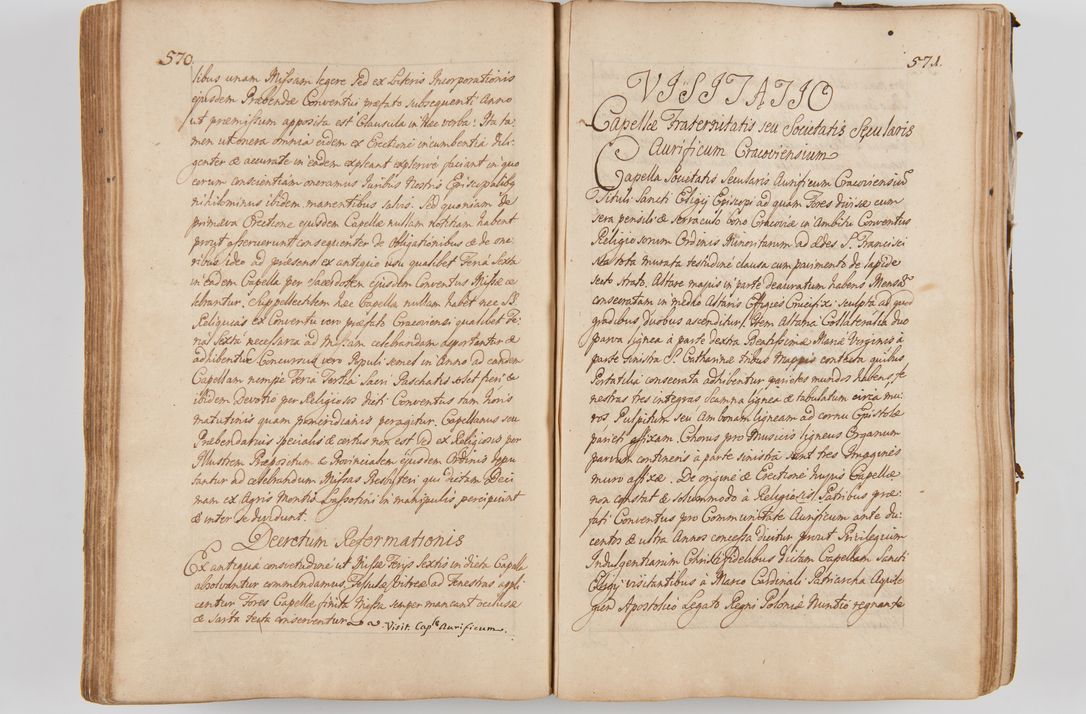 570
libus unam Missam legere sed ex Literis Incorporationis
ejusdem Præbendæ Conventui præfato subsequenti Anno
ut præmissum apposita est Clausula in Hæc verba: Ita ta-
men ut onera omnia eidem ex Erectione incumbentia dili-
genter & accurate in eadem expleant explerive faciant in quo
eorum conscientiam oneramus Juribus Nostris Episcopalibg
nihilominus ibidem manentibus salvis. Sed quoniam de
primæva Erectione ejusdem Capellæ nullam notitiam habent
prout asseruerunt consequenter de obligationibus & de one-
ribus ideo ad præsens ex antiquo usu qualibet Feria Sexta
in eadem Capella per sacerdotem ejusdem Conventus Missæ ce
lebrantur, Suppellectilem Hæc Capella nullam habet nec SS.
Reliquias ex Conventu vero præfato Cracoviensi qualibet Fe-
ria Sexta necessaria ad Missam celebrandam asportantur &
adhibentur. Concursus vero Populi semel in Anno ad eandem
Capellam nempe Feria Tertia Sacri Paschatis solet fieri &
ibidem Devotio per Religiosos dicti Conventus tam horis
matutinis quam pomeridianis peragitur. Capellanus seu
Præbendarius specialis & certus non est sed ex Religiosis per
Illustrem Præpositum & Provincialem ejusdem Ordinis depu
tantur ad celebrandum Missas Presbyteri qui dictam Deci
mam ex Agris Montis Lassotini in manipulis percipiunt
& inter se dividunt.
Decretum Reformationis
Ex antiqua consvetudine ut Missæ Ferijs Sextis in dicta Capella
absolvantur commendamus, Fissuræ Vitreæ ad Fenestras appli
centur Fores Capellæ finita Missa semper maneant occlusæ
& Sarta tecta conserventur.
Visit. Caplæ Aurificum.
571.
VISITATIO
Capellæ Fraternitatis seu Societatis Sæcularis
Aurificum Cracoviensium
Capella Societatis Secularis Aurificum Cracoviensiū
Tituli Sancti Eligij Episcopi ad quam Fores divisæ cum
sera pensili & serraculo bono Cracoviæ in Ambitu Conventus
Religiosorum Ordinis Minoritarum ad Ædes S. Francisci
sita tota murata testudine clausa cum pavimento de lapide
secto strato, Altare majus in parte deauratum habens Mensā
consecratam in medio Altaris Effigies Crucifixi sculpta ad quod
gradibus duobus ascenditur, Item Altaria Collateralia duo
parva lignea à parte dextra Beatissimæ Mariæ Virginis à
parte sinistra S. Catharinæ tribus mappis contecta quibus
Portatilia consecrata adhibentur parietes mundos habens, fe
nestras tres integras scamna lignea & tabulatum circa mu-
ros Pulpitum seu Ambonam ligneam ad cornu Epistolæ
parieti affixam. Chorus pro Musicis ligneus Organum
parvum continens à parte sinistra sunt tres Imagines
muro affixæ. De origine & Erectione hujus Capellæ
non constat & solummodo à Religiosis Patribus præ-
fati Conventus pro Communitate Aurificum ante du-
centos & ultra Annos concessa dicitur prout Privilegium
Indulgentiarum Christi fidelibus dictam Capellam Sancti
Eligij visitantibus à Marco Cardinali Patriarcha Aquile
gien Apostolico Legato Regni Poloniæ Nuntio regnante